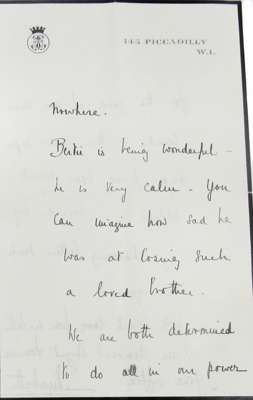 145 PICCADILLY
W.1.
Nowhere.
Bertie is being wonderful -
he is very calm. You
can imagine how sad he
was at losing such
a loved brother.
We are both determined
to do all in our power